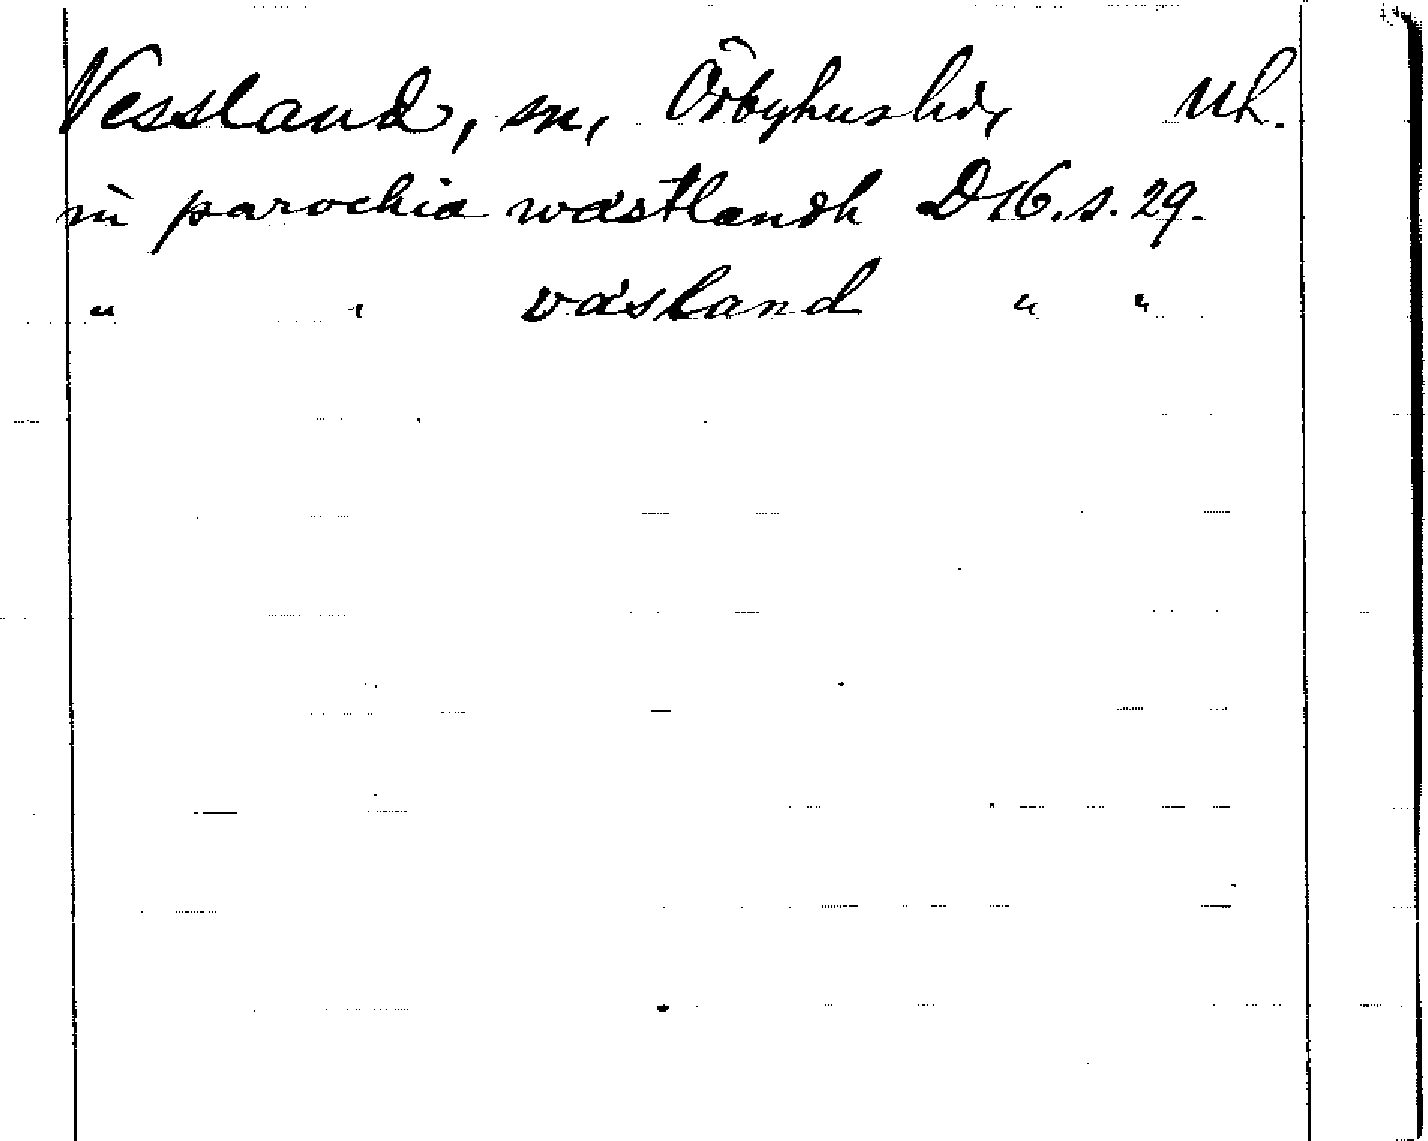 Vessland, sn, Örbyhus hd, Uh.
in parochia wästlandh D16. s. 29.
" " väsland " "